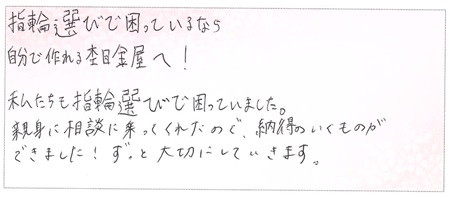 指輪選びで困っているなら
自分で作れる杢目金屋へ！
私たちも指輪選びで困っていました。
親身に相談に乗ってくれたので、納得のいくものが
できました！ずっと大切にしていきます。